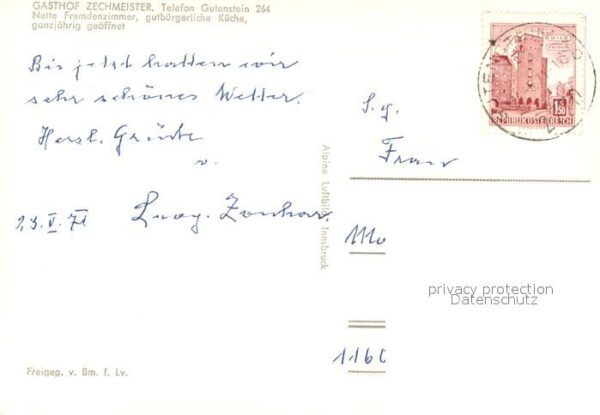 GASTHOF ZECHMEISTER. Telefon Gutenstein 264
Nette Fremdenzimmer, gutbürgerliche Küche,
ganzjährig geöffnet
Bis jetzt hatten wir
sehr schönes Wetter.
Herzl. Grüße
v.
23. V. 71
Alpine Luftbild Innsbruck
Freigeg. v. Bm. f. Lv.
WIEN
1.50
REPUBLIK ÖSTERREICH
S. g.
Frau
1110
1160
privacy protection
Datenschutz